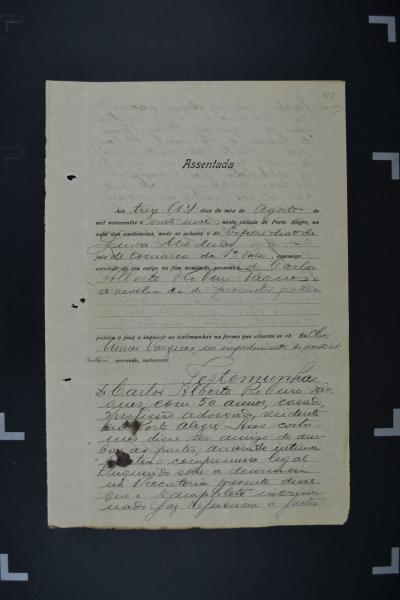 Assentada
Aos trez (13) dias do mez de Agosto de
mil novecentos e vinte nove, nesta cidade de Porto Alegre, na
sala das audiencias, onde se achava o dr Esperidião de
Lima Medeiros
juiz de comarca da 1ª Vara, commigo
escrivão de seu cargo no fim nomeado, presente dr Carlos
Alberto Ribeiro
a revelia do dr promotor publico
passou o juiz a inquirir as testimunhas na forma que adiante se vê. Eu,
Nunes Vasques, no impedimento do
escrivão, subscrevi.
Testemunha
Dr Carlos Alberto Ribeiro
ques com 50 annos, casado
profissão advogado, residente
em Porto Alegre. Aos costu
mes disse ser amigo de am
bas as partes,
compromisso legal
Inquirido sobre a denuncia
da Promotoria presente disse
que o pamphleto incrimi
nado faz referencia a factos